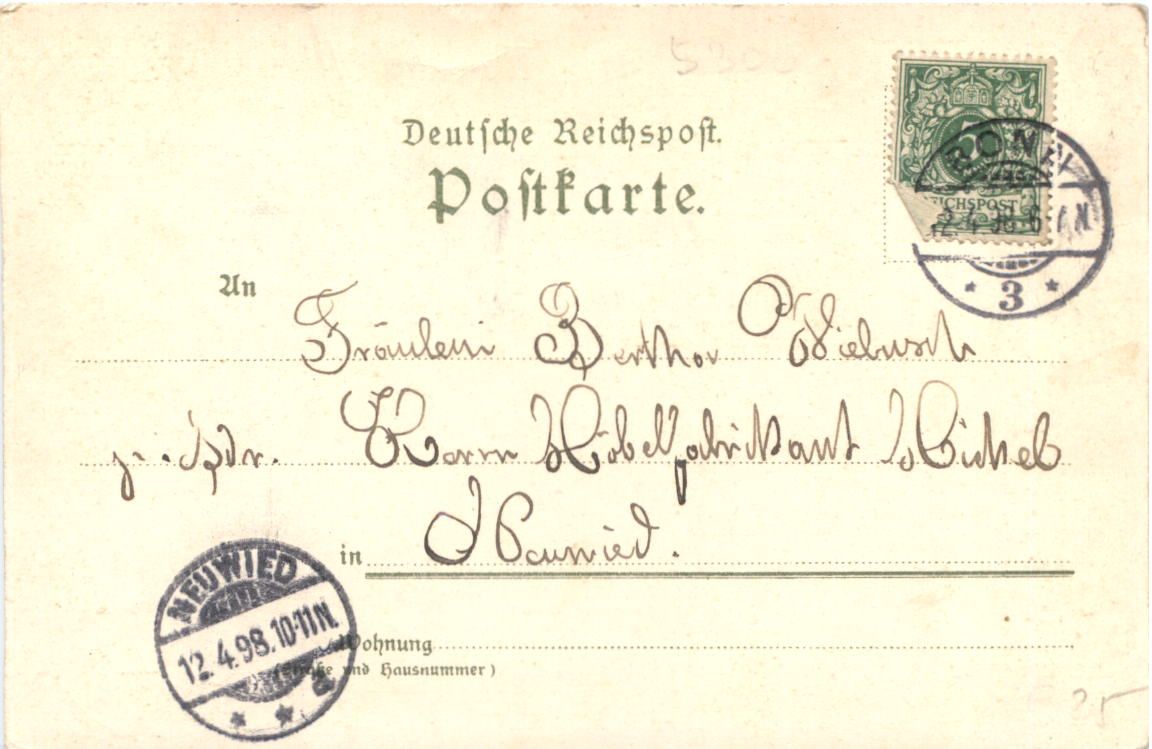 5300
Deutsche Reichspost.
Postkarte.
5
REICHSPOST
BONN
12.4.98.6-7 N.
* 3 *
An
Fräulein Bertha
Herrn Möbelfabrikant Michel
in Neuwied.
NEUWIED
12.4.98.10-11N.
* * a
Wohnung
(Straße und Hausnummer)
25